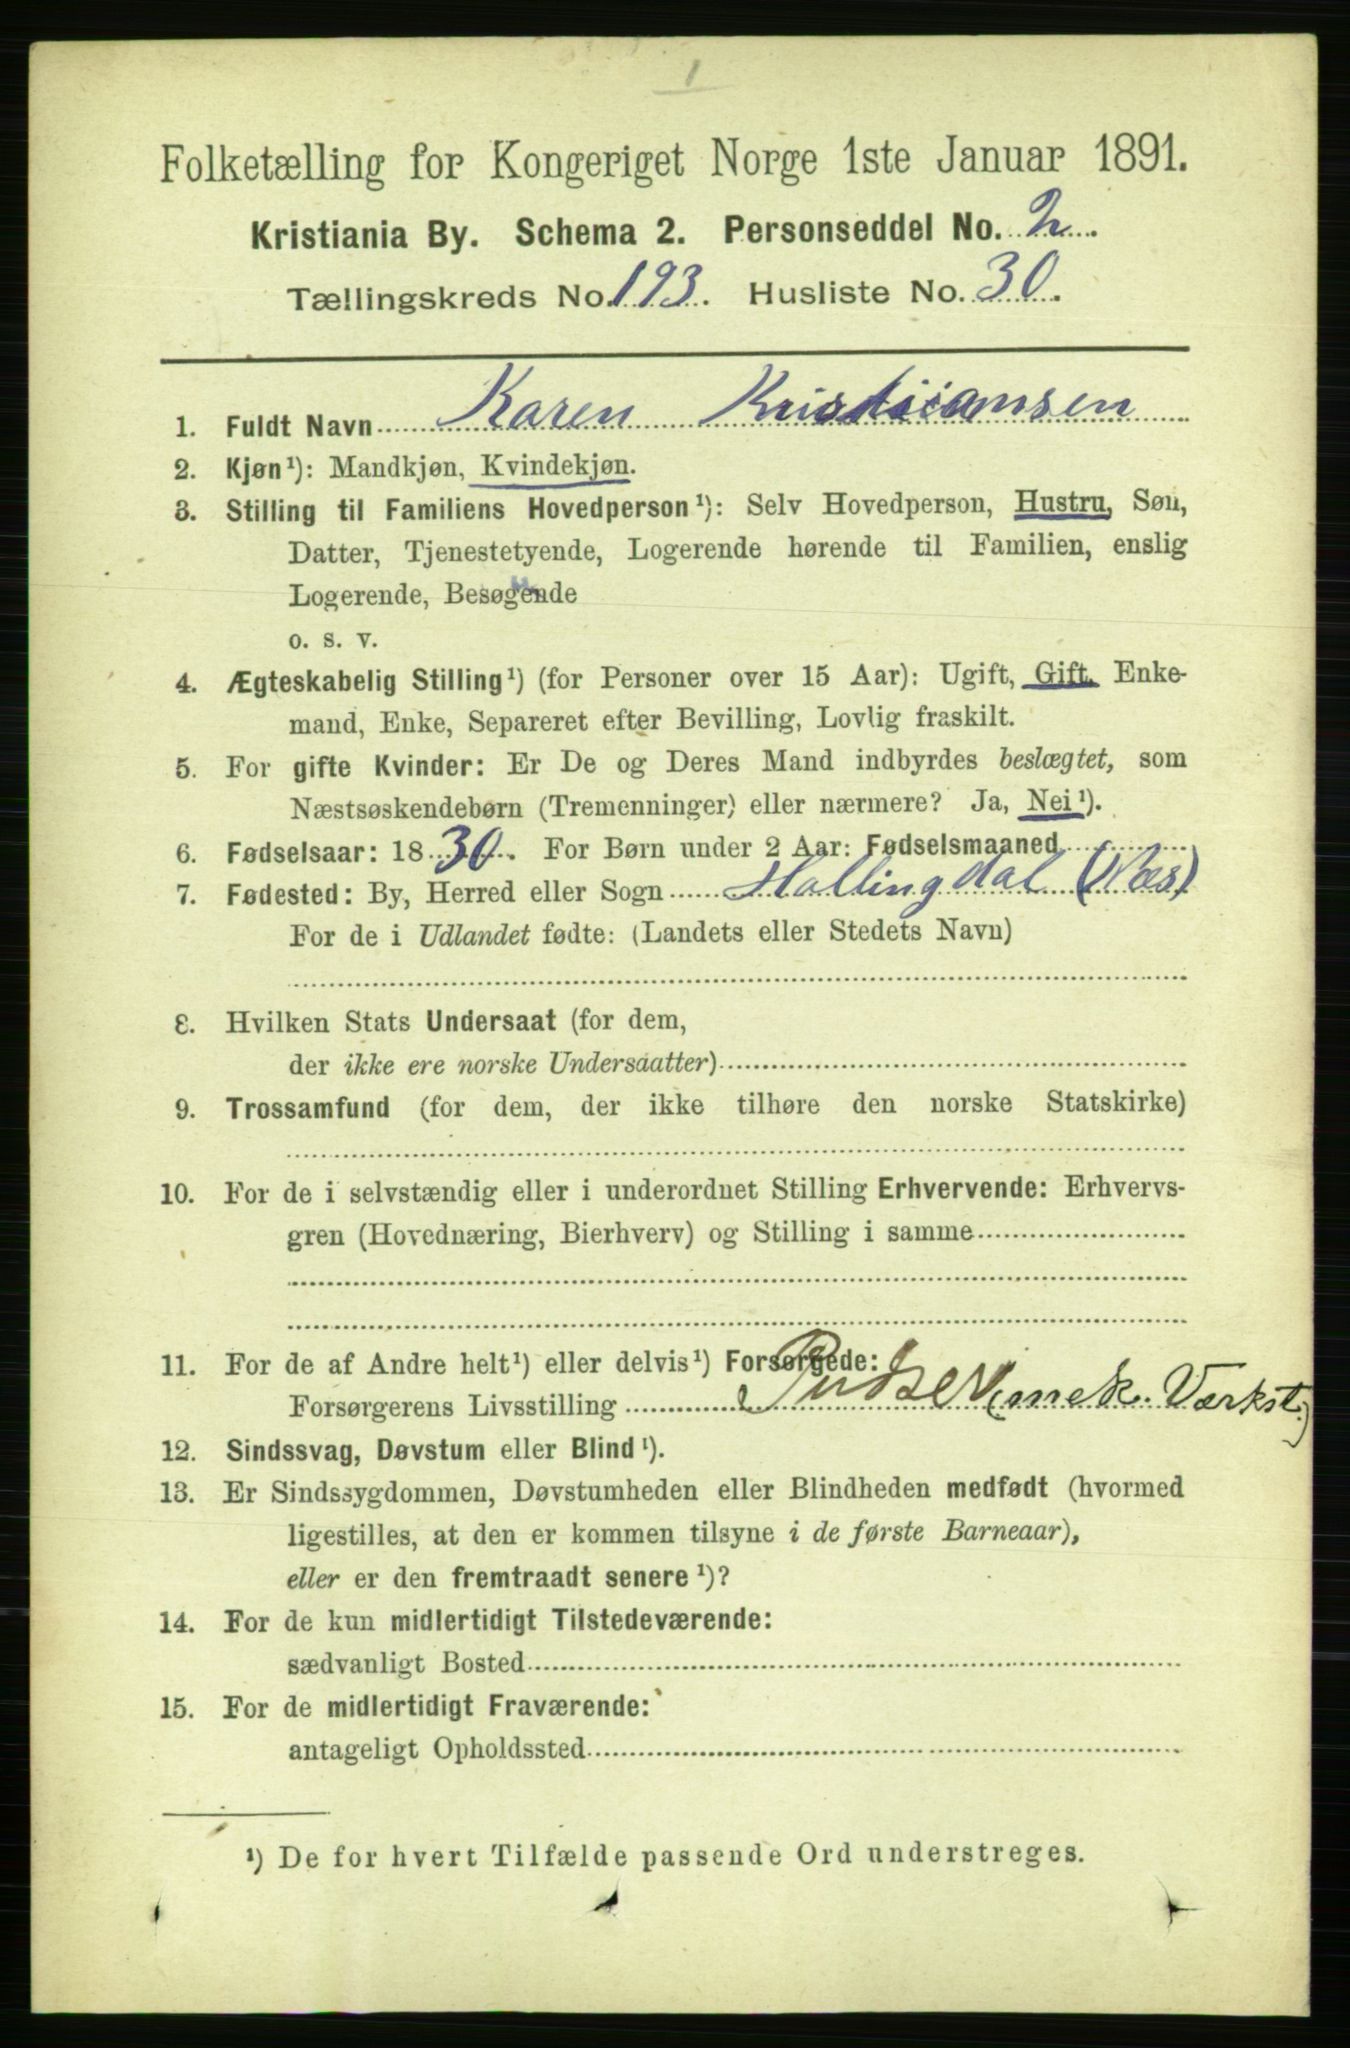 1
Folketælling for Kongeriget Norge 1ste Januar 1891.
Kristiania By. Schema 2. Personseddel No. 2.
Tællingskreds No. 193. Husliste No. 30.
1. Fuldt Navn Karen Kristiansen
2. Kjøn¹): Mandkjøn, Kvindekjøn.
3. Stilling til Familiens Hovedperson¹): Selv Hovedperson, Hustru, Søn,
Datter, Tjenestetyende, Logerende hørende til Familien, enslig
Logerende, Besøgende
o. s. v.
4. Ægteskabelig Stilling¹) (for Personer over 15 Aar): Ugift, Gift, Enke-
mand, Enke, Separeret efter Bevilling, Lovlig fraskilt.
5. For gifte Kvinder: Er De og Deres Mand indbyrdes beslægtet, som
Næstsøskendebørn (Tremenninger) eller nærmere? Ja, Nei¹).
6. Fødselsaar: 1830. For Børn under 2 Aar: Fødselsmaaned
7. Fødested: By, Herred eller Sogn Hallingdal (Næs)
For de i Udlandet fødte: (Landets eller Stedets Navn)
8. Hvilken Stats Undersaat (for dem,
der ikke ere norske Undersaatter)
9. Trossamfund (for dem, der ikke tilhøre den norske Statskirke)
10. For de i selvstændig eller i underordnet Stilling Erhvervende: Erhvervs-
gren (Hovednæring, Bierhverv) og Stilling i samme
11. For de af Andre helt¹) eller delvis¹) Forsørgede:
Forsørgerens Livsstilling Pudser (mek. Værkst.)
12. Sindssvag, Døvstum eller Blind¹).
13. Er Sindssygdommen, Døvstumheden eller Blindheden medfødt (hvormed
ligestilles, at den er kommen tilsyne i de første Barneaar),
eller er den fremtraadt senere¹)?
14. For de kun midlertidigt Tilstedeværende:
sædvanligt Bosted
15. For de midlertidigt Fraværende:
antageligt Opholdssted
¹) De for hvert Tilfælde passende Ord understreges.